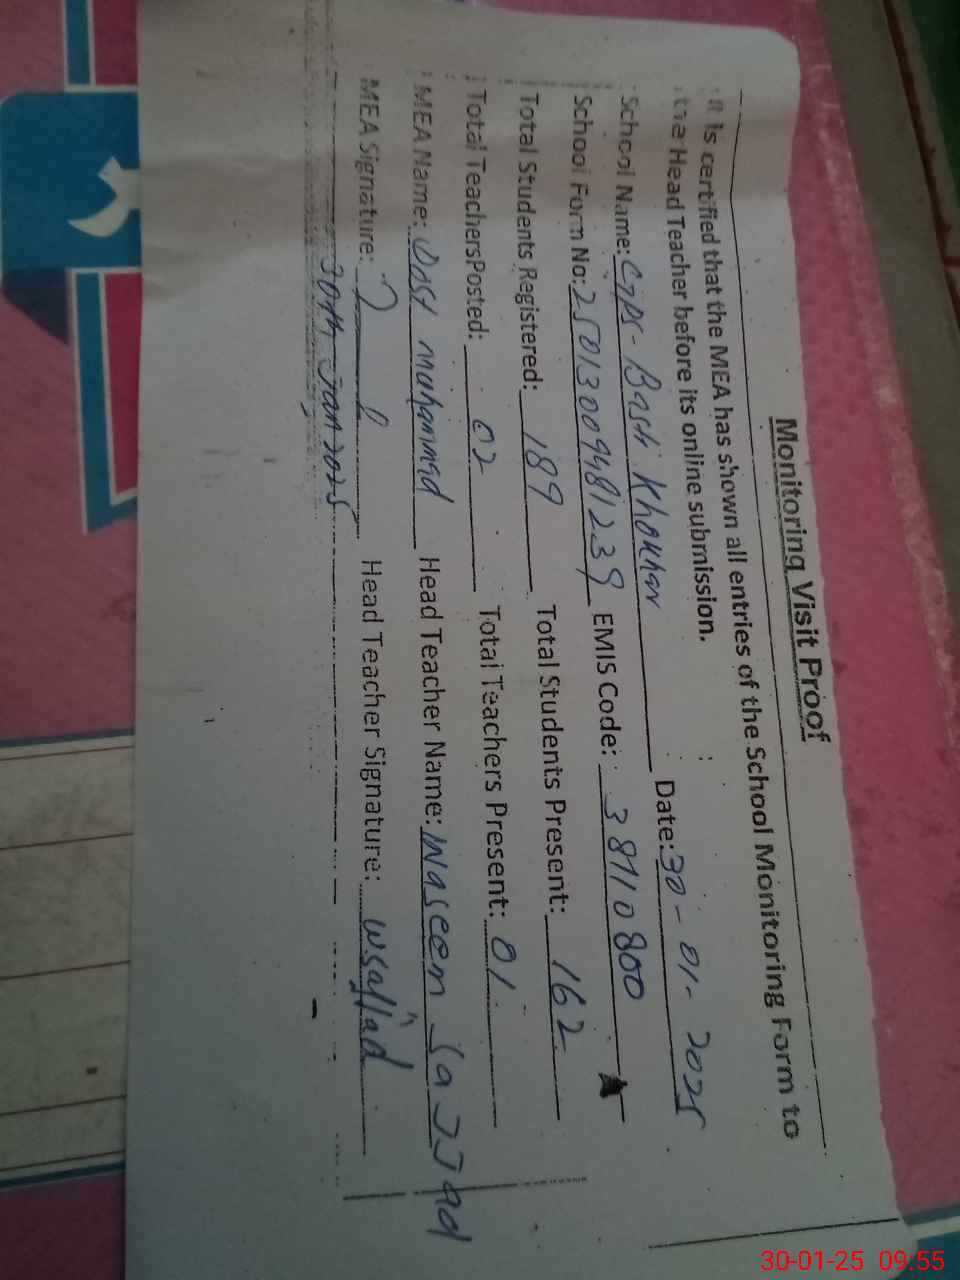 Monitoring Visit Proof
It is certified that the MEA has shown all entries of the School Monitoring Form to
the Head Teacher before its online submission.
School Name: GPS - Basti Khokhar Date: 30-01-2025
School Form No: 25013009481239 EMIS Code: 38110800
Total Students Registered: 189 Total Students Present: 162
Total TeachersPosted: 02 Total Teachers Present: 01
MEA Name: Muhammad Head Teacher Name: Waseem SaJJad
MEA Signature: Head Teacher Signature: wsajjad
30th Jan 2025
30-01-25 09.55